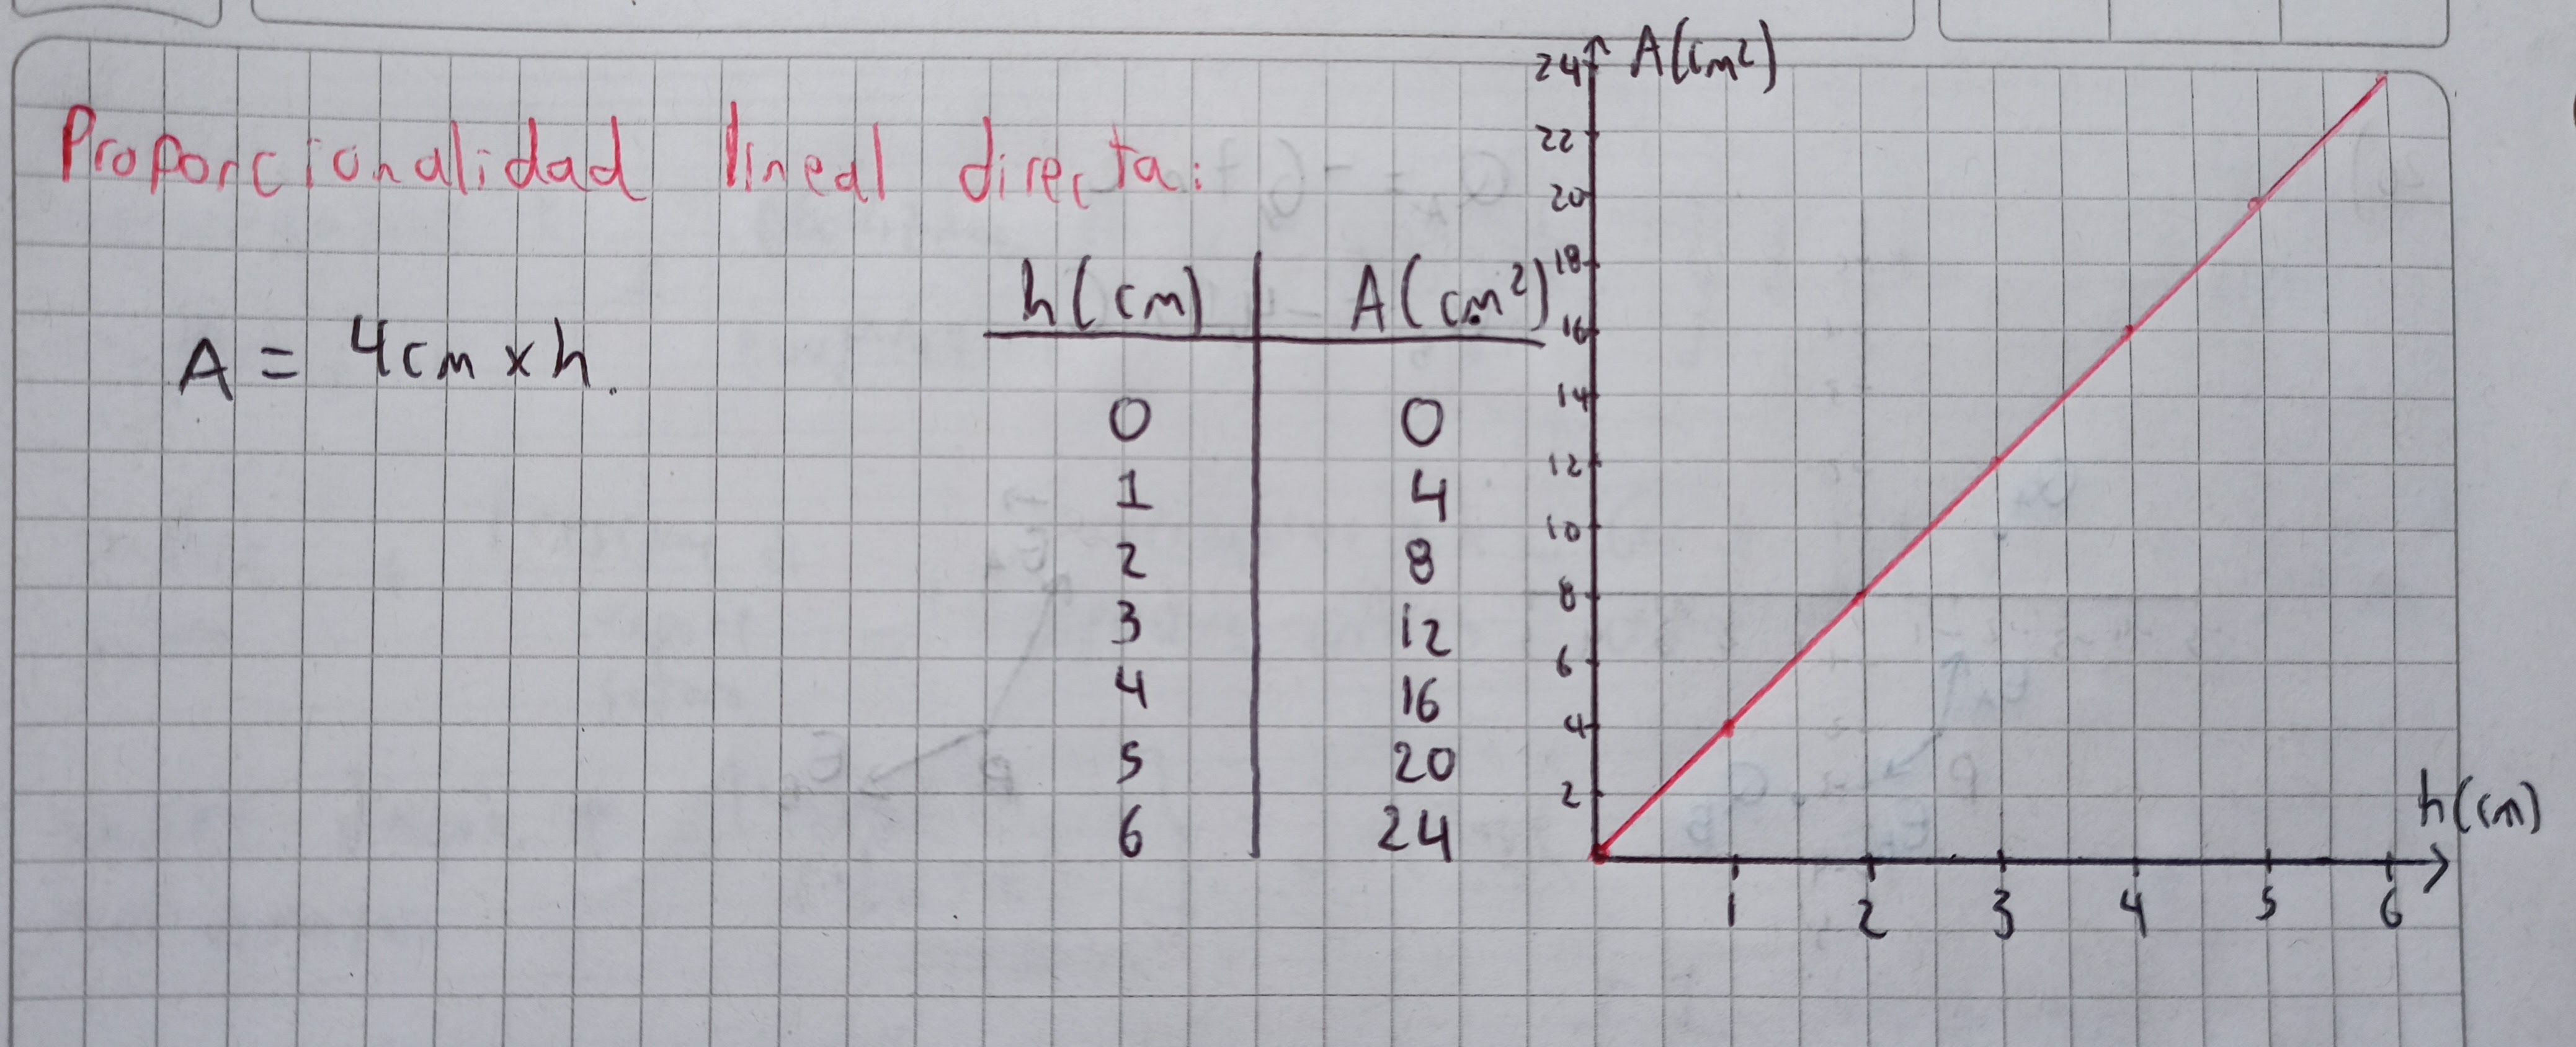 Proporcionalidad lineal directa:
A = 4cm x h.
h(cm) A(cm²)
0 0
1 4
2 8
3 12
4 16
5 20
6 24
A(cm²)
24
22
20
18
16
14
12
10
8
6
4
2
h(cm)
1 2 3 4 5 6